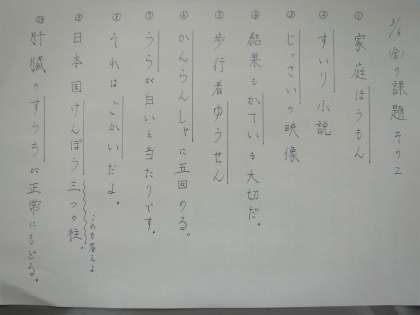 3/6(金)の課題 その2
① 家庭ほうもん
② すいり小説
③ じっさいの映像
④ 結果もかていも大切だ。
⑤ 歩行者ゆうせん
⑥ かんらんしゃに五回のる。
⑦ うらが白いと当たりです。
⑧ それはごかいだよ。
⑨ 日本国けんぽう三つの柱。
これも答えよ
⑩ 肝臓のすうちが正常にもどる。